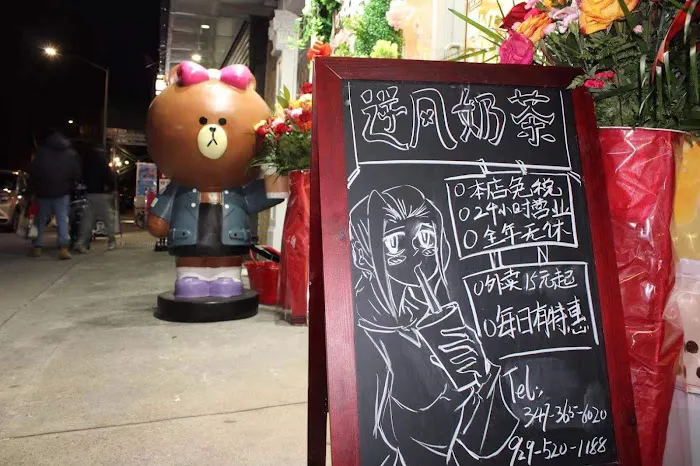 送风奶茶
O本店免税
O24小时营业
O全年无休
O外卖15元起
O每日有特惠
Tel:
347-365-6020
929-520-1188